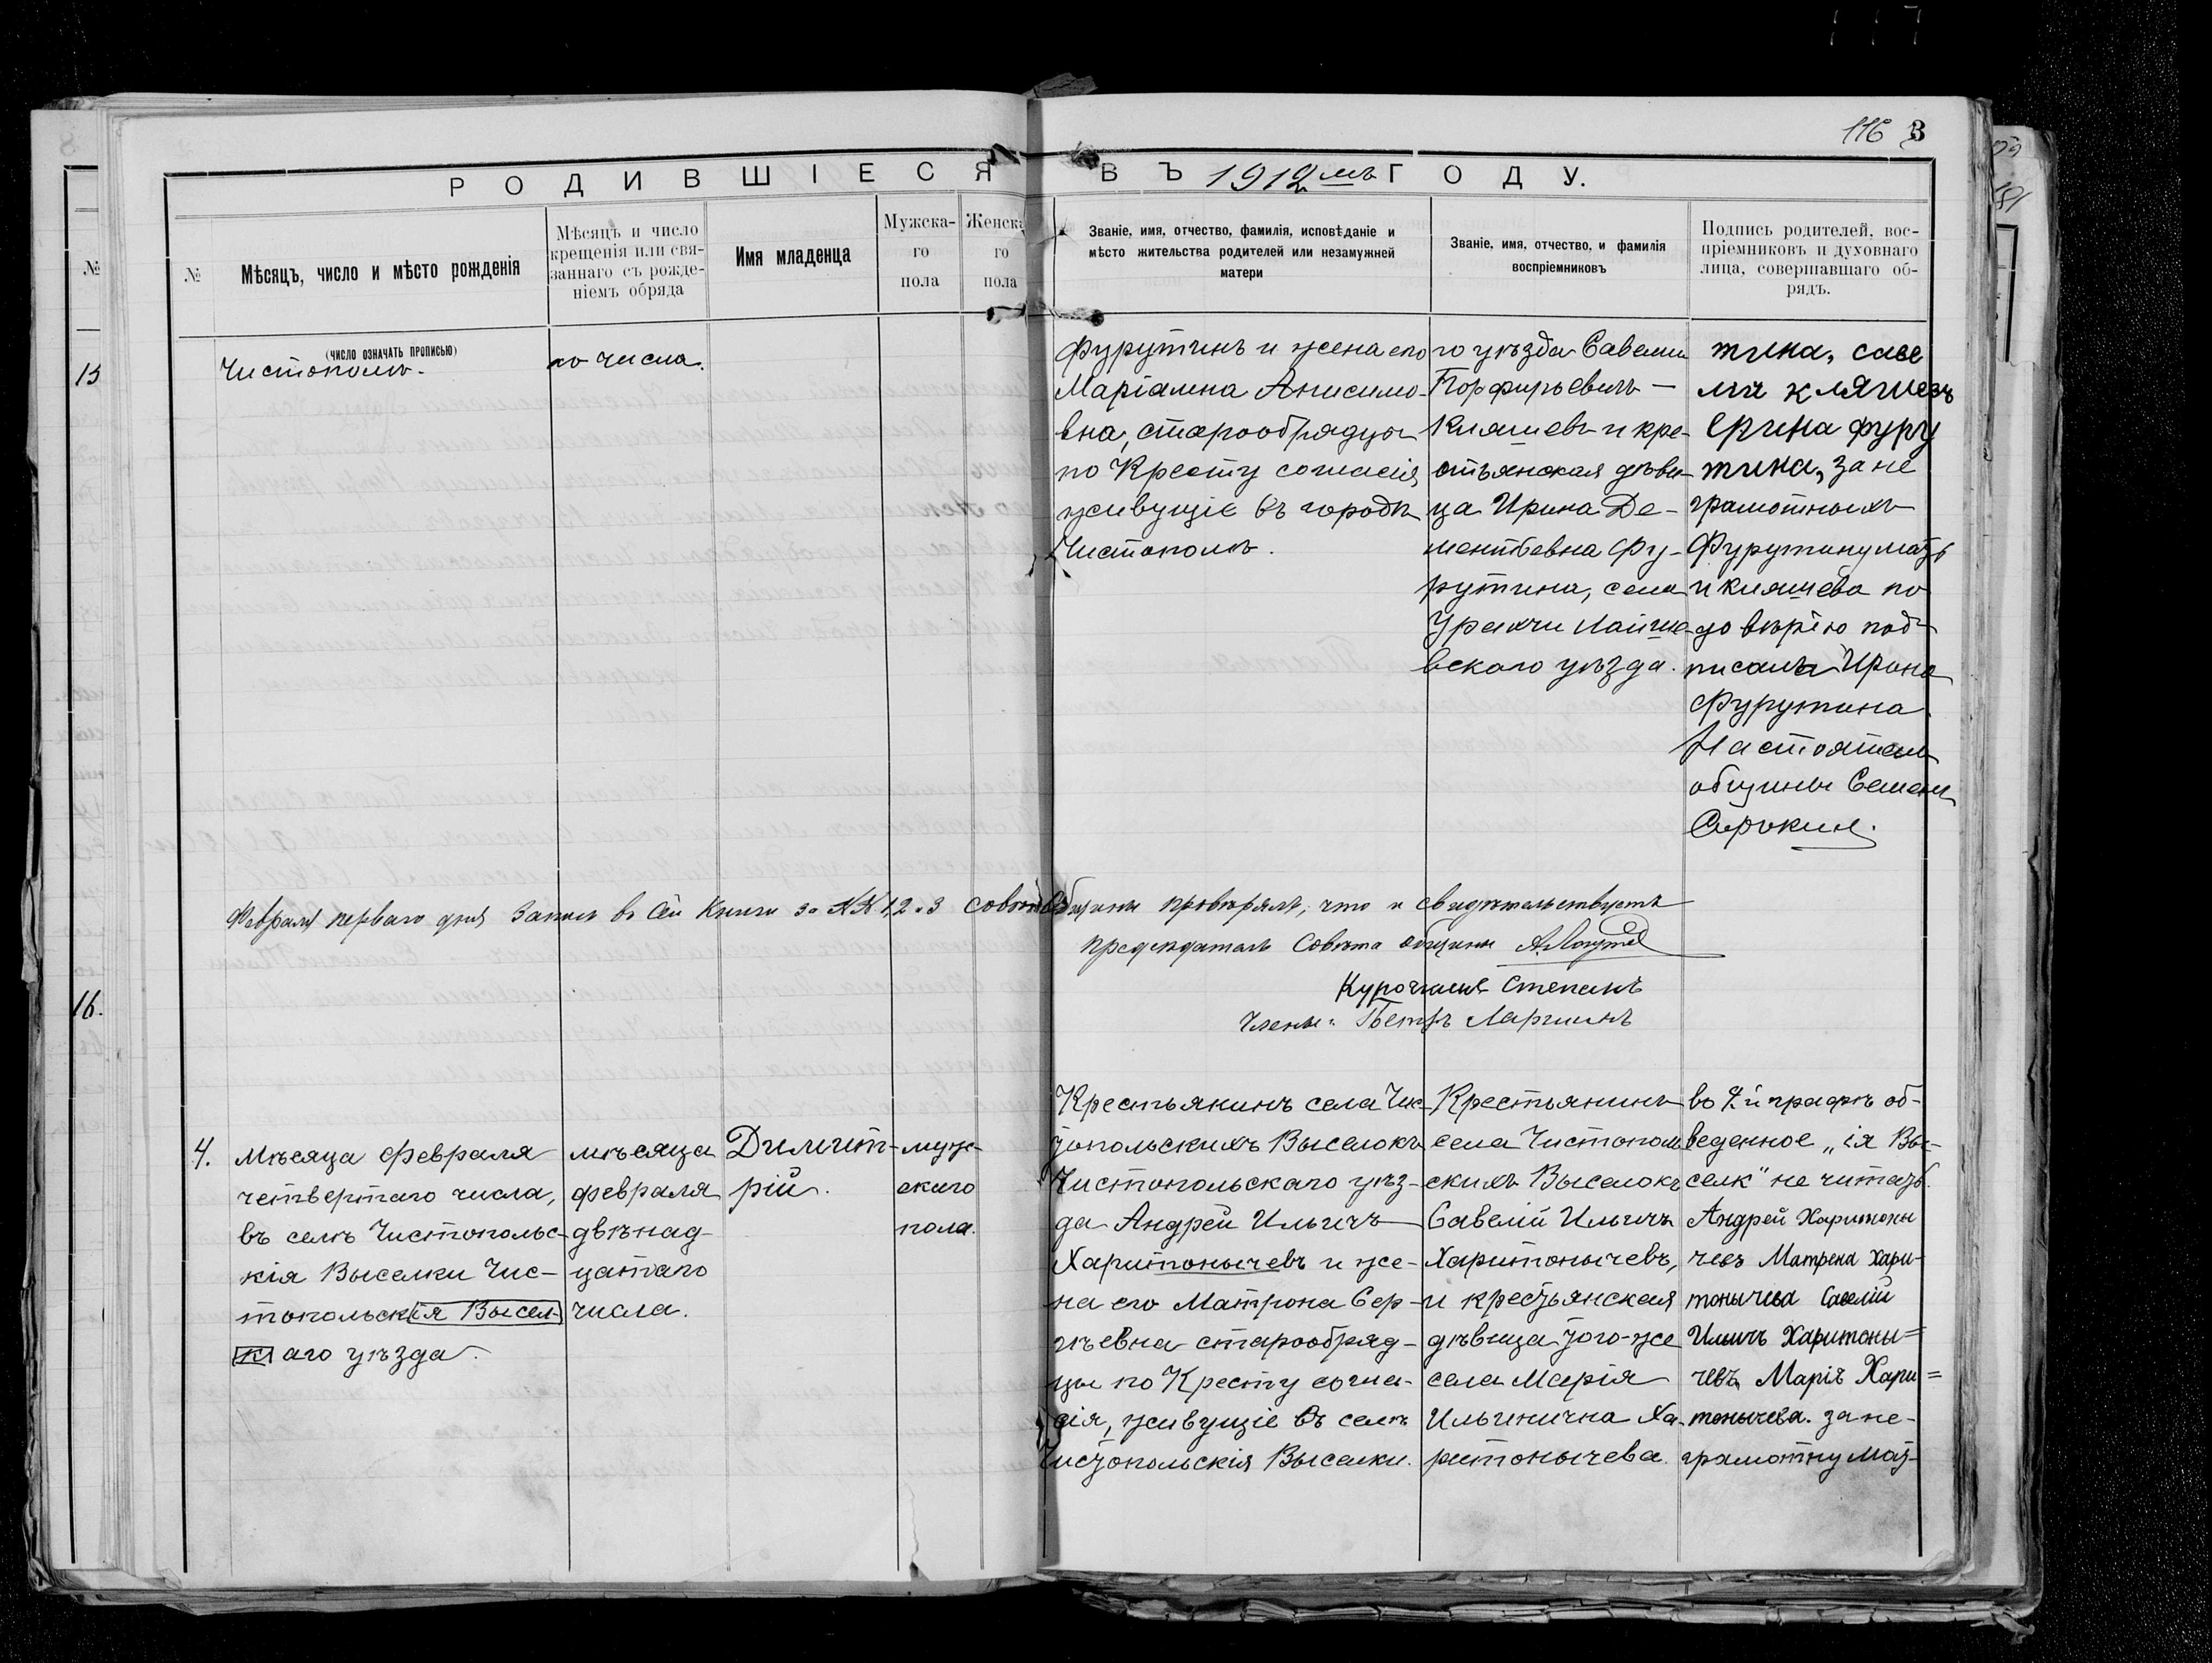 116 3
РОДИВШІЕСЯ ВЪ 1912мъ ГОДУ.
№
Мѣсяцъ, число и мѣсто рожденія
Мѣсяцъ и число
крещенія или свя-
заннаго съ рожде-
ніемъ обряда
Имя младенца
Мужска-
го
пола
Женска
го
пола
Званіе, имя, отчество, фамилія, исповѣданіе и
мѣсто жительства родителей или незамужней
матери
Званіе, имя, отчество, и фамилія
воспріемниковъ
Подпись родителей, вос-
пріемниковъ и духовнаго
лица, совершавшаго об-
рядъ.
(число означать прописью)
Чистополь.
го числа.
Фурутинъ и жена его
Маріамна Анисимо-
вна, старообрядцы
по Кресту согласія,
живущіе въ городѣ
Чистополѣ.
го уѣзда Савелий
Порфирьевичъ
Кляшевъ и кре-
стьянская дѣви-
ца Ирина Де-
ментьевна Фу-
рутина, села
Урахчи Лаише-
вскаго уѣзда.
тина, саве
лий кляшевъ
ерина фуру
тина, за не
грамотныхъ
Фурутину мать
и кляшева по
довѣрію под-
писалъ Ирина
Фурутина
Настоятель
общины Семенъ
Сорокин.
Февраля перваго дня запись в сей книги за №№ 1, 2 и 3 совѣтъ Общины провѣрялъ, что и свидѣтельствуетъ
председатель Совѣта общины
Курочкинъ Степанъ
Члены: Петръ Ларинъ
4.
Мѣсяца Февраля
четвертаго числа,
въ селѣ Чистопольс-
кія Выселки Чис-
топольскія Высел-
к аго уѣзда.
мѣсяца
февраля
двѣнад-
цатаго
числа.
Димит-
рій.
муж-
скаго
пола.
Крестьянинъ села Чис-
топольскихъ Выселокъ
Чистопольскаго уѣз-
да Андрей Ильичъ
Харитонычевъ и же-
на его Матрона Сер-
гѣевна старообряд-
цы по Кресту согла-
сія, живущіе въ селѣ
Чистопольскія Выселки.
Крестьянинъ
села Чистополь-
скихъ Выселокъ
Савелій Ильичъ
Харитонычевъ,
и крестьянская
дѣвица того-же
села Марія
Ильинична Ха-
ритонычева.
во 2й графѣ об-
веденное „ія Вы-
селк" не читать.
Андрей Харитоны
чевъ Матрена Хари-
тонычева Савелій
Ильичъ Харитоны=
чевъ, Марія Хари=
тонычева. за не-
грамотну мат-
№
15
16.